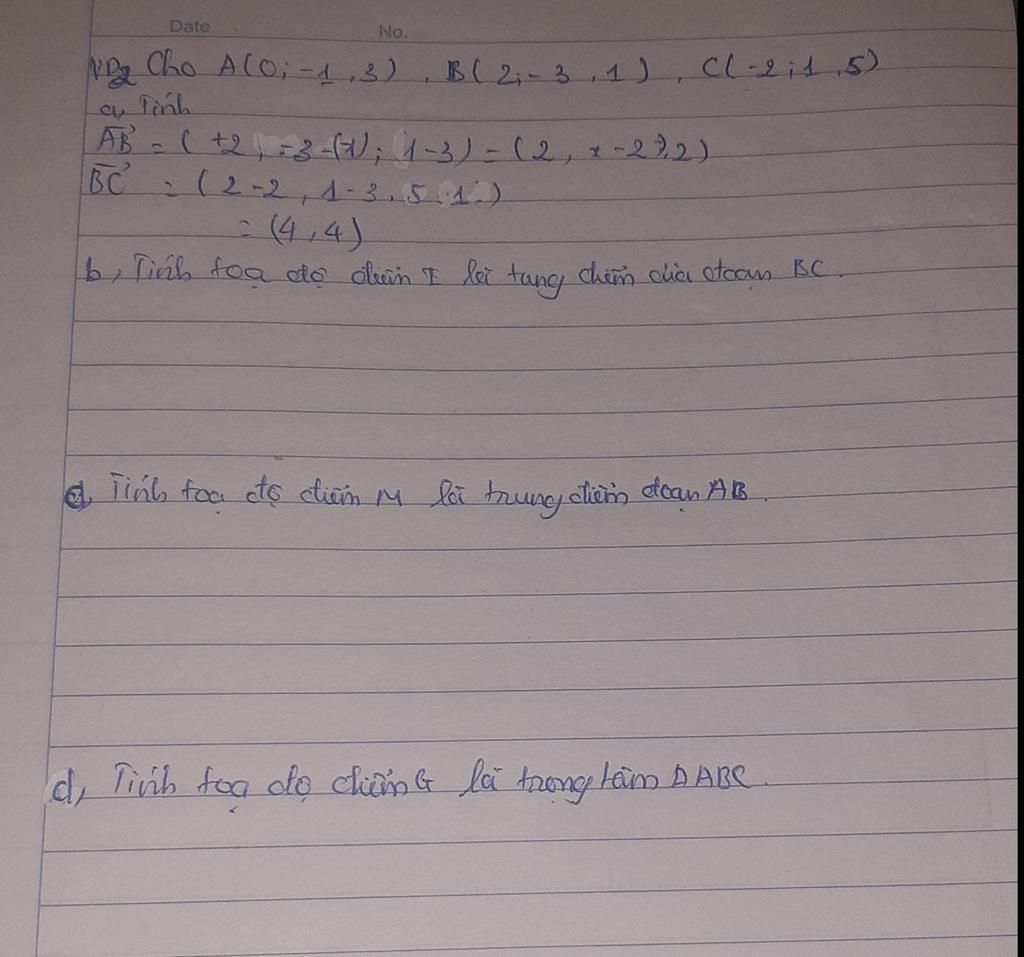 Date No.
VD2 Cho A(0; -1, 3), B(2; -3, 1), C(-2; 1, 5)
a, Tính
AB = ( +2, -3-(-1); 1-3) = (2, + -2), 2)
BC = (2-2, 1-3, 5 1)
= (4, 4)
b, Tính toạ độ điểm I là tung điểm của đoạn BC.
c, Tính toạ độ điểm M là trung điểm đoạn AB.
d, Tính toạ độ điểm G là trọng tâm ΔABC.